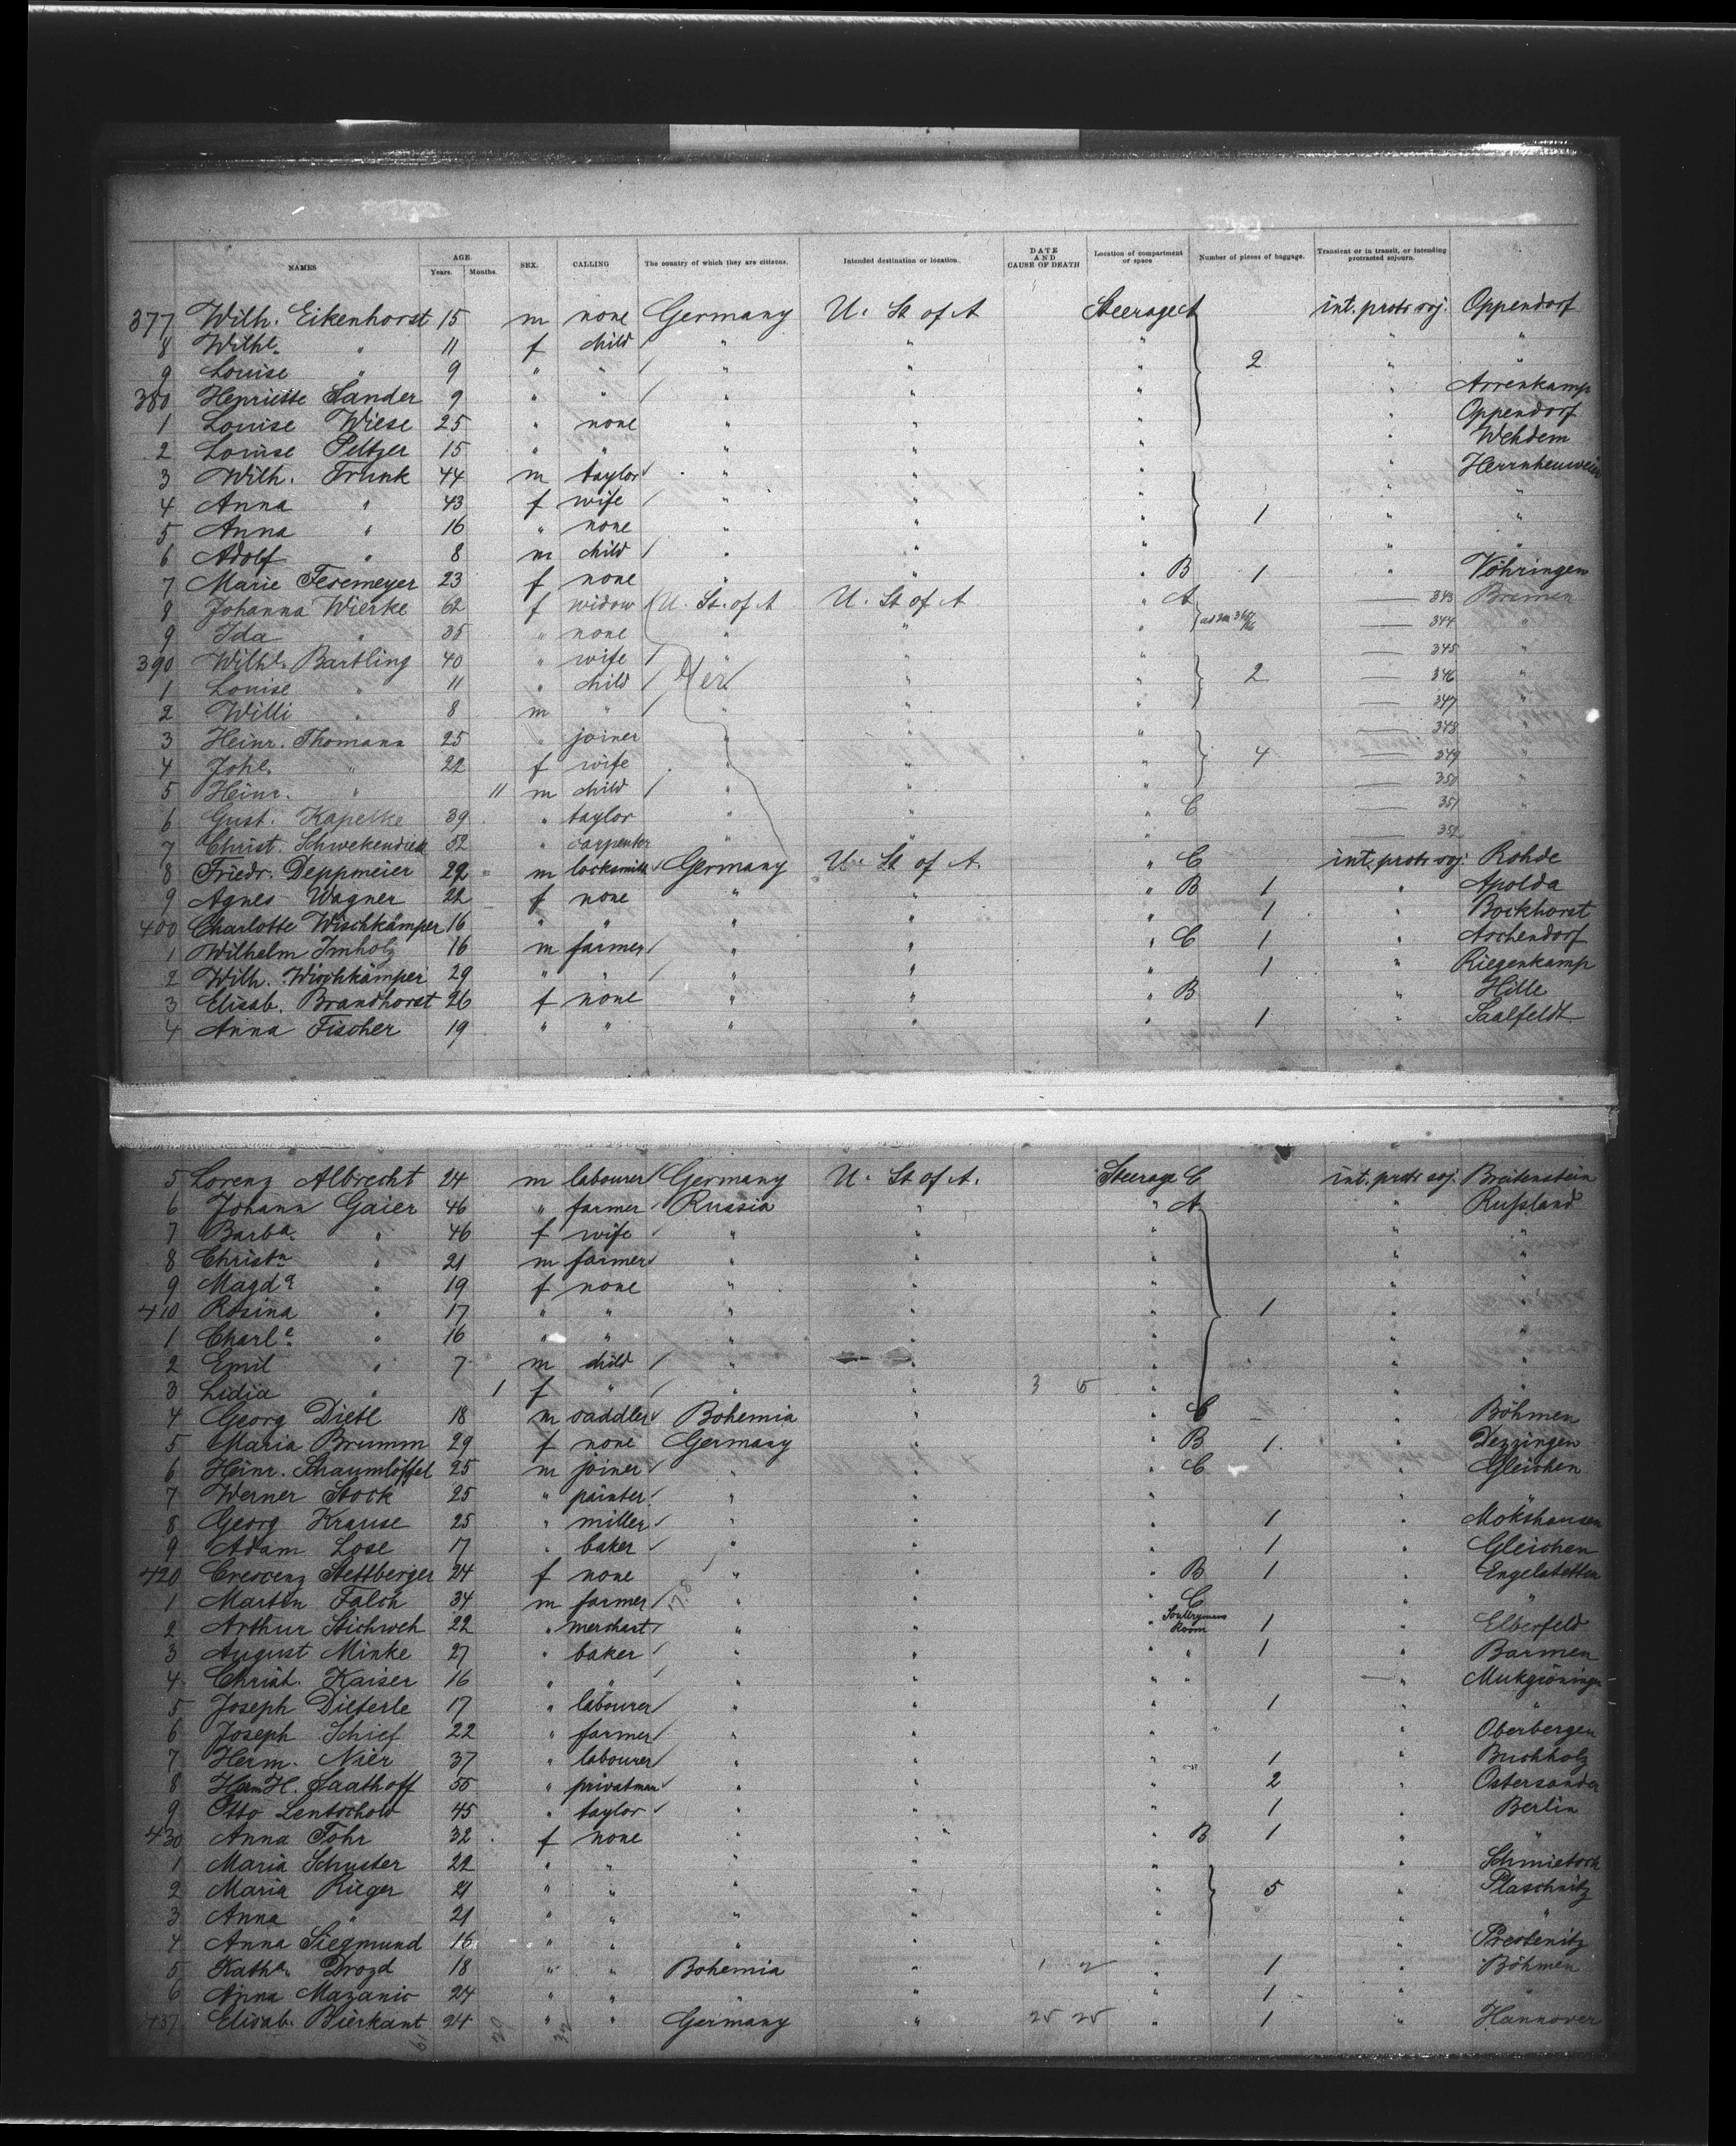 NAMES AGE. Years. Months. SEX. CALLING The country of which they are citizens. Intended destination or location. DATE AND CAUSE OF DEATH Location of compartment or space Number of pieces of baggage. Transient or in transit, or intending protracted sojourn.
377 Wilh. Eikenhorst 15 m none Germany U. St of A Steerage A int. protr soj. Oppendorf
8 Wilhe. " 11 f child / " " " "  "
9 Louise " 9 " " / " " " 2 " "
380 Henriette Sander 9 " " / " " " " Arrenkamp
1 Louise Wiese 25 " none " " " " Oppendorf
2 Louise Peltzer 15 " " " " " " Wehdem
3 Wilh. Trunk 44 m taylor " " " "
4 Anna " 43 f wife / " " " " "
5 Anna " 16 " none " " " 1 " "
6 Adolf " 8 m child / " " " " "
7 Marie Fesemeyer 23 f none " " " B 1 " Vöhringen
8 Johanna Wierke 62 f widow U. St. of A U. St of A " A 343 Bremen
9 Ida " 35 " none " " " 344 "
390 Wilhe. Bartling 40 " wife / " " " 345 "
1 Louise " 11 " child / Ger " " 2 346 "
2 Willi " 8 m " / " " " 347 "
3 Heinr. Thomann 25 " joiner " " " 348 "
4 Johe. " 22 f wife " " " 4 349 "
5 Heinr. " 11 m child / " " " 350 "
6 Gust. Kapelke 39 " taylor " " " C 351 "
7 Christ. Schwekendiek 52 " carpenter " " " 352 "
8 Friedr. Deppmeier 22 m locksmith Germany U. St of A. " C int. protr soj. Rohde
9 Agnes Wagner 22 f none " " " B 1 " Apolda
400 Charlotte Wischkämper 16 " " " " " 1 " Bockhorst
1 Wilhelm Imholz 16 m farmer / " " " C 1 " Aschendorf
2 Wilh. Wischkämper 29 " " / " " " 1 " Riegenkamp
3 Elisab. Brandhorst 26 f none " " " B " Hille
4 Anna Fischer 19 " " " " " 1 " Saalfeldt
5 Lorenz Albrecht 24 m labourer / Germany U. St of A. Steerage C int. protr soj. Breitenstein
6 Johann Gaier 46 " farmer / Russia " " A " Rußland
7 Barba. " 46 f wife / " " " " "
8 Christn. " 21 m farmer / " " " " "
9 Magda " 19 f none " " " " "
410 Rosina " 17 " " " " " 1 " "
1 Charle. " 16 " " " " " " "
2 Emil " 7 m child / " " " " "
3 Lidia " 1 f " / " " 3 5 " " "
4 Georg Dietl 18 m saddler / Bohemia " " C " Böhmen
5 Maria Brumm 29 f none Germany " " B 1 " Dezzingen
6 Heinr. Schaumlöffel 25 m joiner / " " " C " Gleichen
7 Werner Stock 25 " painter / " " " " "
8 Georg Krause 25 " miller / " " " 1 " Mokshausen
9 Adam Lose 17 " baker / " " " 1 " Gleichen
420 Crescenz Stettberger 24 f none " " " B 1 " Engelstetten
1 Martin Falch 34 m farmer / " " " C " "
2 Arthur Stichweh 22 " merchant / " " " Room 1 " Elberfeld
3 August Minke 27 " baker / " " " " 1 " Barmen
4 Christ. Kaiser 16 " " / " " " " "
5 Joseph Dieterle 17 " labourer / " " " 1 " "
6 Joseph Schief 22 " farmer / " " " " " Oberbergen
7 Herm. Nier 37 " labourer / " " " 1 " Buchholz
8 Herm H. Saathoff 55 " privatman / " " " 2 " Ostersander
9 Otto Lentschold 45 " taylor / " " " 1 " Berlin
430 Anna Fohr 32 f none " " " B 1 " "
1 Maria Schuster 22 " " " " " "
2 Maria Rieger 21 " " " " " 5 " Plaschnitz
3 Anna " 21 " " " " " " "
4 Anna Siegmund 16 " " " " " " Prestenitz
5 Katha. Drozd 18 " " Bohemia " 1 2 " 1 " Böhmen
6 Anna Mazanic 24 " " " " " 1 " "
437 Elisab. Bierkant 24 " " Germany " 25 25 " 1 " Hannover